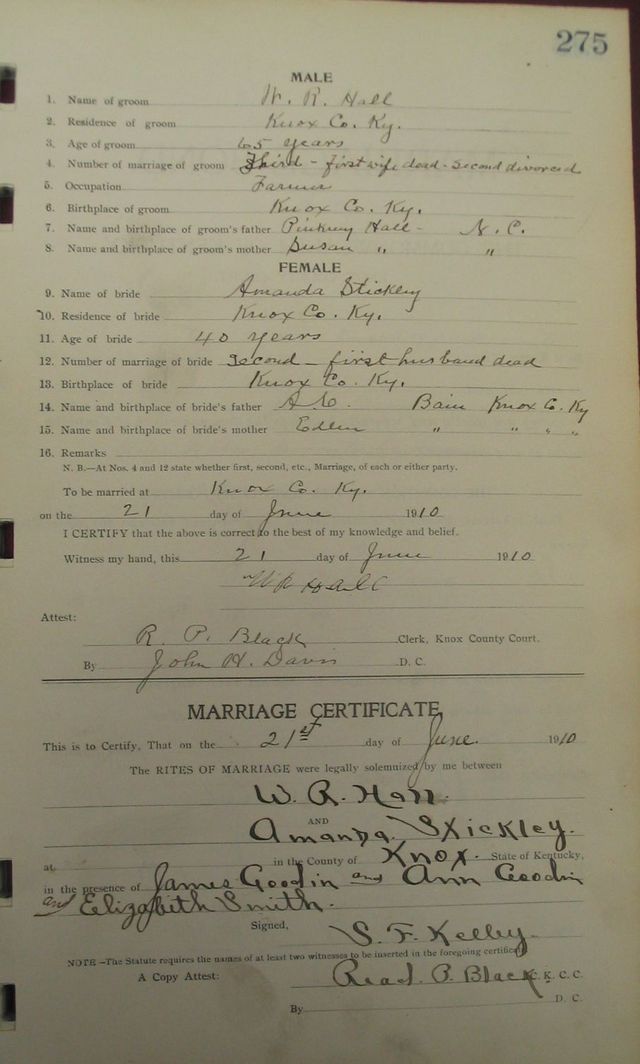 275
MALE
1. Name of groom W. R. Hall
2. Residence of groom Knox Co. Ky.
3. Age of groom 65 years
4. Number of marriage of groom Third - first wife dead - second divorced
5. Occupation Farmer
6. Birthplace of groom Knox Co. Ky.
7. Name and birthplace of groom's father Pinkney Hall - N. C.
8. Name and birthplace of groom's mother Susan " "
FEMALE
9. Name of bride Amanda Stickley
10. Residence of bride Knox Co. Ky.
11. Age of bride 40 years
12. Number of marriage of bride Second - first husband dead
13. Birthplace of bride Knox Co. Ky.
14. Name and birthplace of bride's father Bain Knox Co. Ky
15. Name and birthplace of bride's mother " " " "
16. Remarks
N. B.—At Nos. 4 and 12 state whether first, second, etc., Marriage, of each or either party.
To be married at Knox Co. Ky.
on the 21 day of June 1910
I CERTIFY that the above is correct to the best of my knowledge and belief.
Witness my hand, this 21 day of June 1910
W R Hall
Attest:
R. P. Black Clerk, Knox County Court.
By John H. Davis D. C.
MARRIAGE CERTIFICATE
This is to Certify, That on the 21st day of June. 1910
The RITES OF MARRIAGE were legally solemnized by me between
W. R. Hall.
AND
Amanda. Stickley.
at in the County of Knox. State of Kentucky,
in the presence of James Goodin and Ann Goodin
and Elizabeth Smith.
Signed, S. F. Kelley.
NOTE—The Statute requires the names of at least two witnesses to be inserted in the foregoing certificate
A Copy Attest: Read. P. Black C. K. C. C.
By D. C.